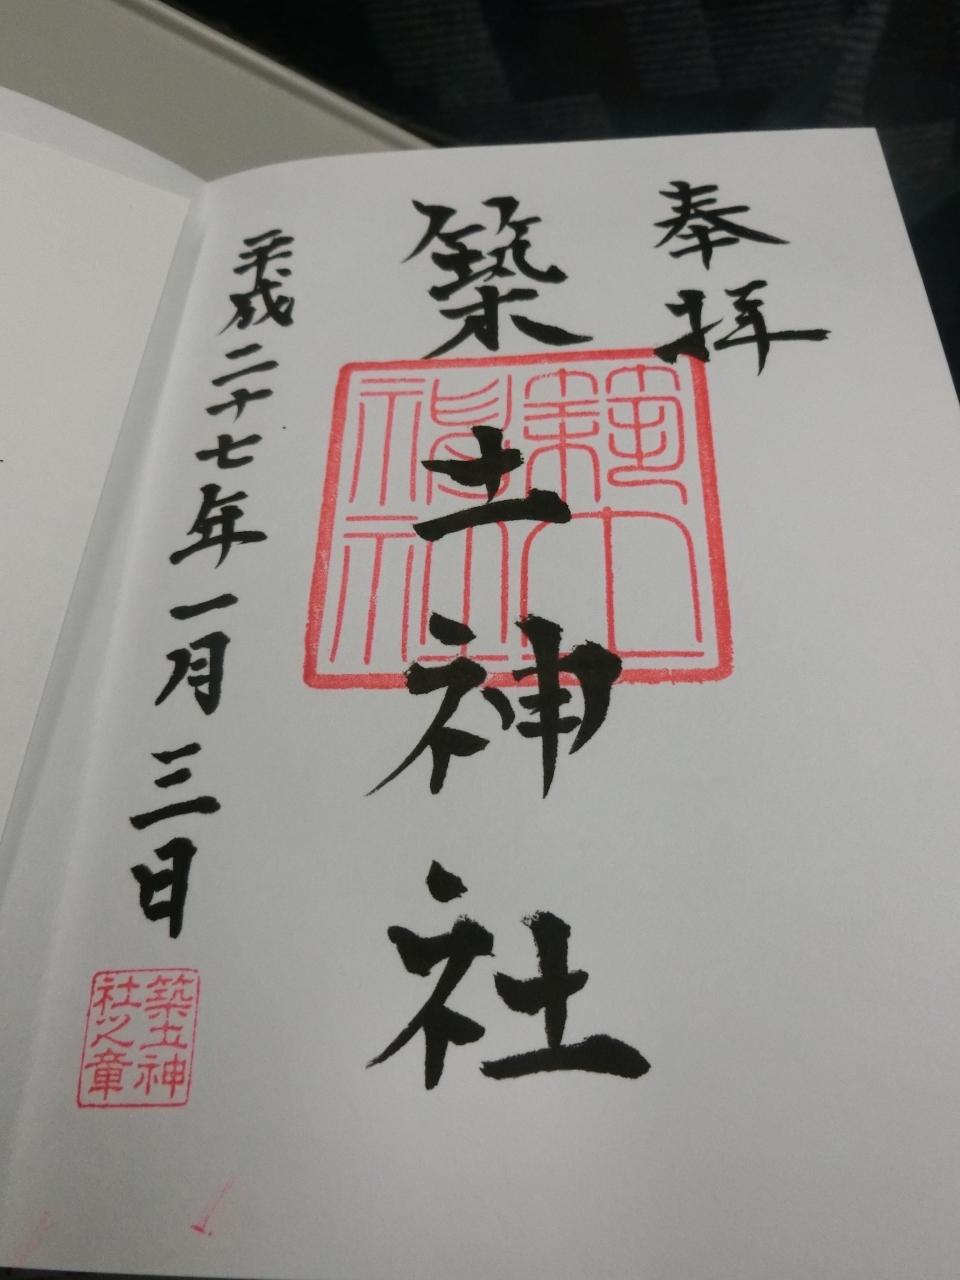 奉拝
築土神社
平成二十七年一月三日
築土神社
築土神
社之章